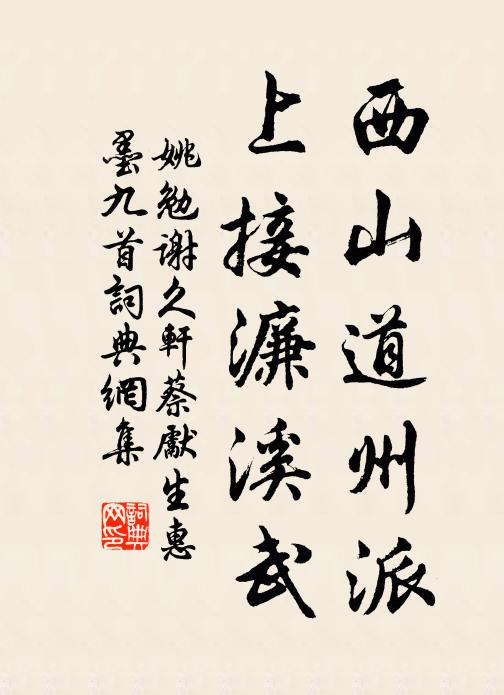 西山道州派
上接濂溪武
姚勉谢久軒蔡獻生惠
墨九首詞典網集
詞典网印